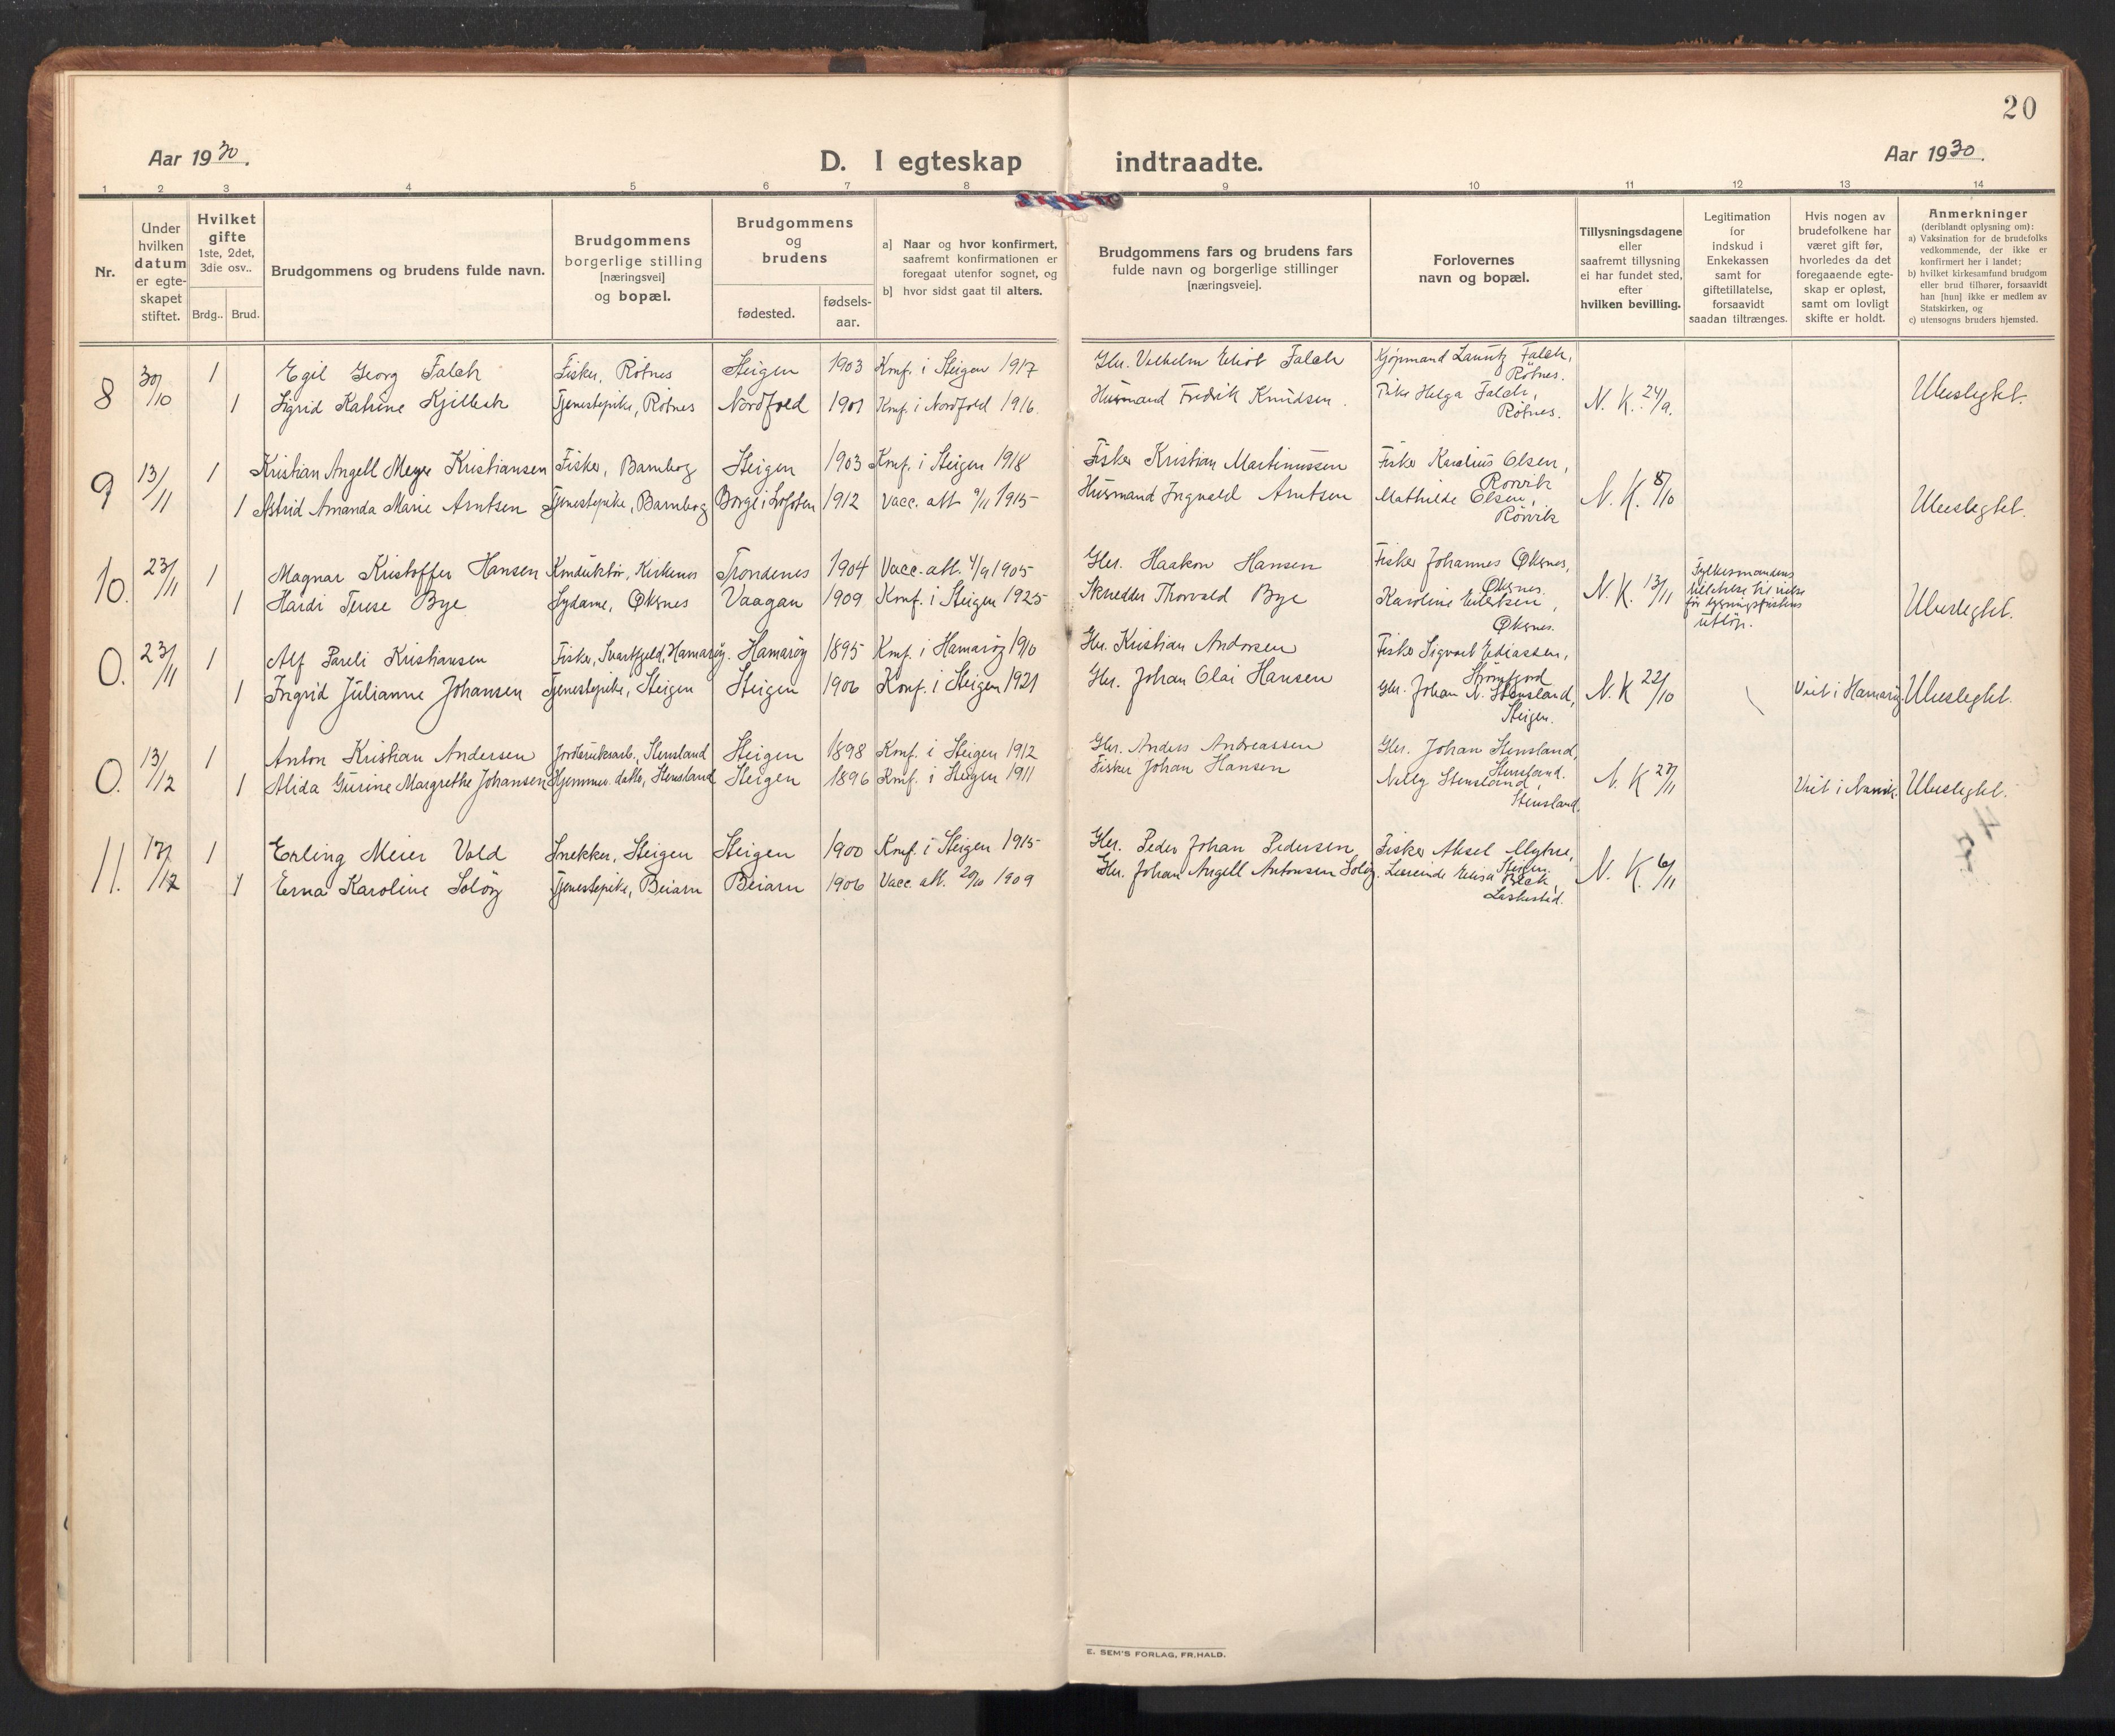 20
Aar 1930.
D. I egteskap indtraadte.
Aar 1930.
1 2 3 4 5 6 7 8 9 10 11 12 13 14
Nr.
Under hvilken datum er egte-skapet stiftet.
Hvilket gifte 1ste, 2det, 3die osv..
Brdg.. Brud.
Brudgommens og brudens fulde navn.
Brudgommens borgerlige stilling [næringsvei] og bopæl.
Brudgommens og brudens
fødested.
fødsels-aar.
a] Naar og hvor konfirmert, saafremt konfirmationen er foregaat utenfor sognet, og
b] hvor sidst gaat til alters.
Brudgommens fars og brudens fars fulde navn og borgerlige stillinger [næringsveie].
Forlovernes navn og bopæl.
Tillysningsdagene eller saafremt tillysning ei har fundet sted, efter hvilken bevilling.
Legitimation for indskud i Enkekassen samt for giftetillatelse, forsaavidt saadan tiltrænges.
Hvis nogen av brudefolkene har været gift før, hvorledes da det foregaaende egte-skap er opløst, samt om lovligt skifte er holdt.
Anmerkninger (deriblandt oplysning om):
a) Vaksination for de brudefolks vedkommende, der ikke er konfirmert her i landet;
b) hvilket kirkesamfund brudgom eller brud tilhører, forsaavidt han [hun] ikke er medlem av Statskirken, og
c) utensogns bruders hjemsted.
8 30/10 1 Egil Georg Falch Fisker, Røtnes Steigen 1903 Konf. i Steigen 1917 Gbr. Vilhelm Falch Kjøpmand Lauritz Falch, Røtnes.
1 Sigrid Katrine Kjilbeck Tjenestepike, Røtnes Nordfold 1901 Konf. i Nordfold 1916. Husmand Fredrik Knudsen. Pike Helga Falch, Røtnes. N. K. 24/9. Ubeslegtet.
9 13/11 1 Kristian Angell Meyer Kristiansen Fisker, Bamberg Steigen 1903 Konf. i Steigen 1918 Fisker Kristian Martinussen Fisker Karelius Olsen, Rørvik
1 Astrid Amanda Marie Arntsen Tjenestepike, Bamberg Borge i Lofoten 1912 Vacc. att 9/11 1915 Husmand Ingvald Arntsen Mathilde Olsen, Rørvik N. K. 8/10 Ubeslegtet.
10. 23/11 1 Magnar Kristoffer Hansen Konduktør, Kirkenes Trondenes 1904 Vacc. att. 4/9 1905 Gbr. Haakon Hansen Fisker Johannes Øksnes, Øksnes.
1 Hardi Terese Bye Sydame, Øksnes Vaagan 1909 Konf. i Steigen 1925 Skredder Thorvald Bye Karoline Eilertsen, Øksnes. N. K. 13/11 Fylkesmandens tilladelse til vielse før lysningsfristens utløp. Ubeslegtet.
0. 23/11 1 Alf Pareli Kristiansen Fisker, Svartfjeld, Hamarøy. Hamarøy 1895 Konf. i Hamarøy 1910 Gbr. Kristian Andersen Fisker Sigvart Ediassen, Strømfjord
1 Ingrid Julianne Johansen Tjenestepike, Steigen Steigen 1906 Konf. i Steigen 1921 Gbr. Johan Olai Hansen Gbr. Johan N. Stensland, Steigen. N. K 22/10 Viet i Hamarøy. Ubeslegtet.
0. 13/12 1 Anton Kristian Andersen Jordbruksarb., Stensland Steigen 1898 Konf. i Steigen 1912 Gbr. Anders Andreassen Gbr. Johan Stensland, Stensland.
1 Alida Gurine Margrethe Johansen Hjemmev. datter, Stensland Steigen 1896 Konf. i Steigen 1911 Fisker Johan Hansen Nelly Stensland, Stensland. N. K 27/11 Viet i Narvik. Ubeslegtet.
11. 17/12 1 Erling Meier Vold Snekker, Steigen Steigen 1900 Konf. i Steigen 1915 Gbr. Peder Johan Pedersen Fisker Aksel Myhre, Steigen.
1 Erna Karoline Soløy Tjenestepike, Beiarn Beiarn 1906 Vacc. att. 20/10 1909 Gbr. Johan Angell Antonsen Soløy. Lærerinde Elisa Beck, Laskestad. N. K. 6/11
E. SEM'S FORLAG, FR.HALD.